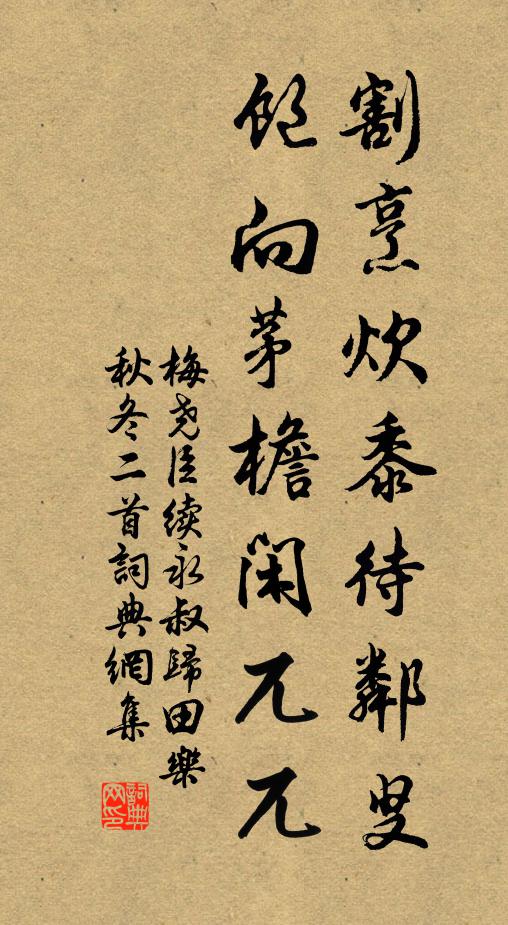 割烹炊黍待鄰叟
飽向茅檐閑兀兀
梅堯臣續永叔歸田樂
秋冬二首詞典網集
詞典
网印